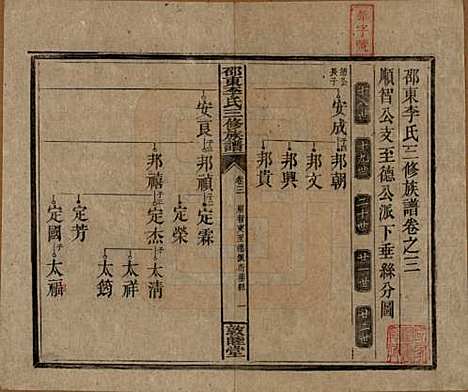 邵東李氏三修族譜卷之三
順智公支至德公派下垂絲分圖
十八世 十九世 二十世 廿一世 廿二世
長子
安成 邦朝
邦文
邦興
邦貴
邵東李氏三修族譜
卷三
一
敦睦堂
安良 邦禎 定霖
定榮
邦禧 子 定杰 子 太清
太祥
太鈞
定芳
定國 子 太福